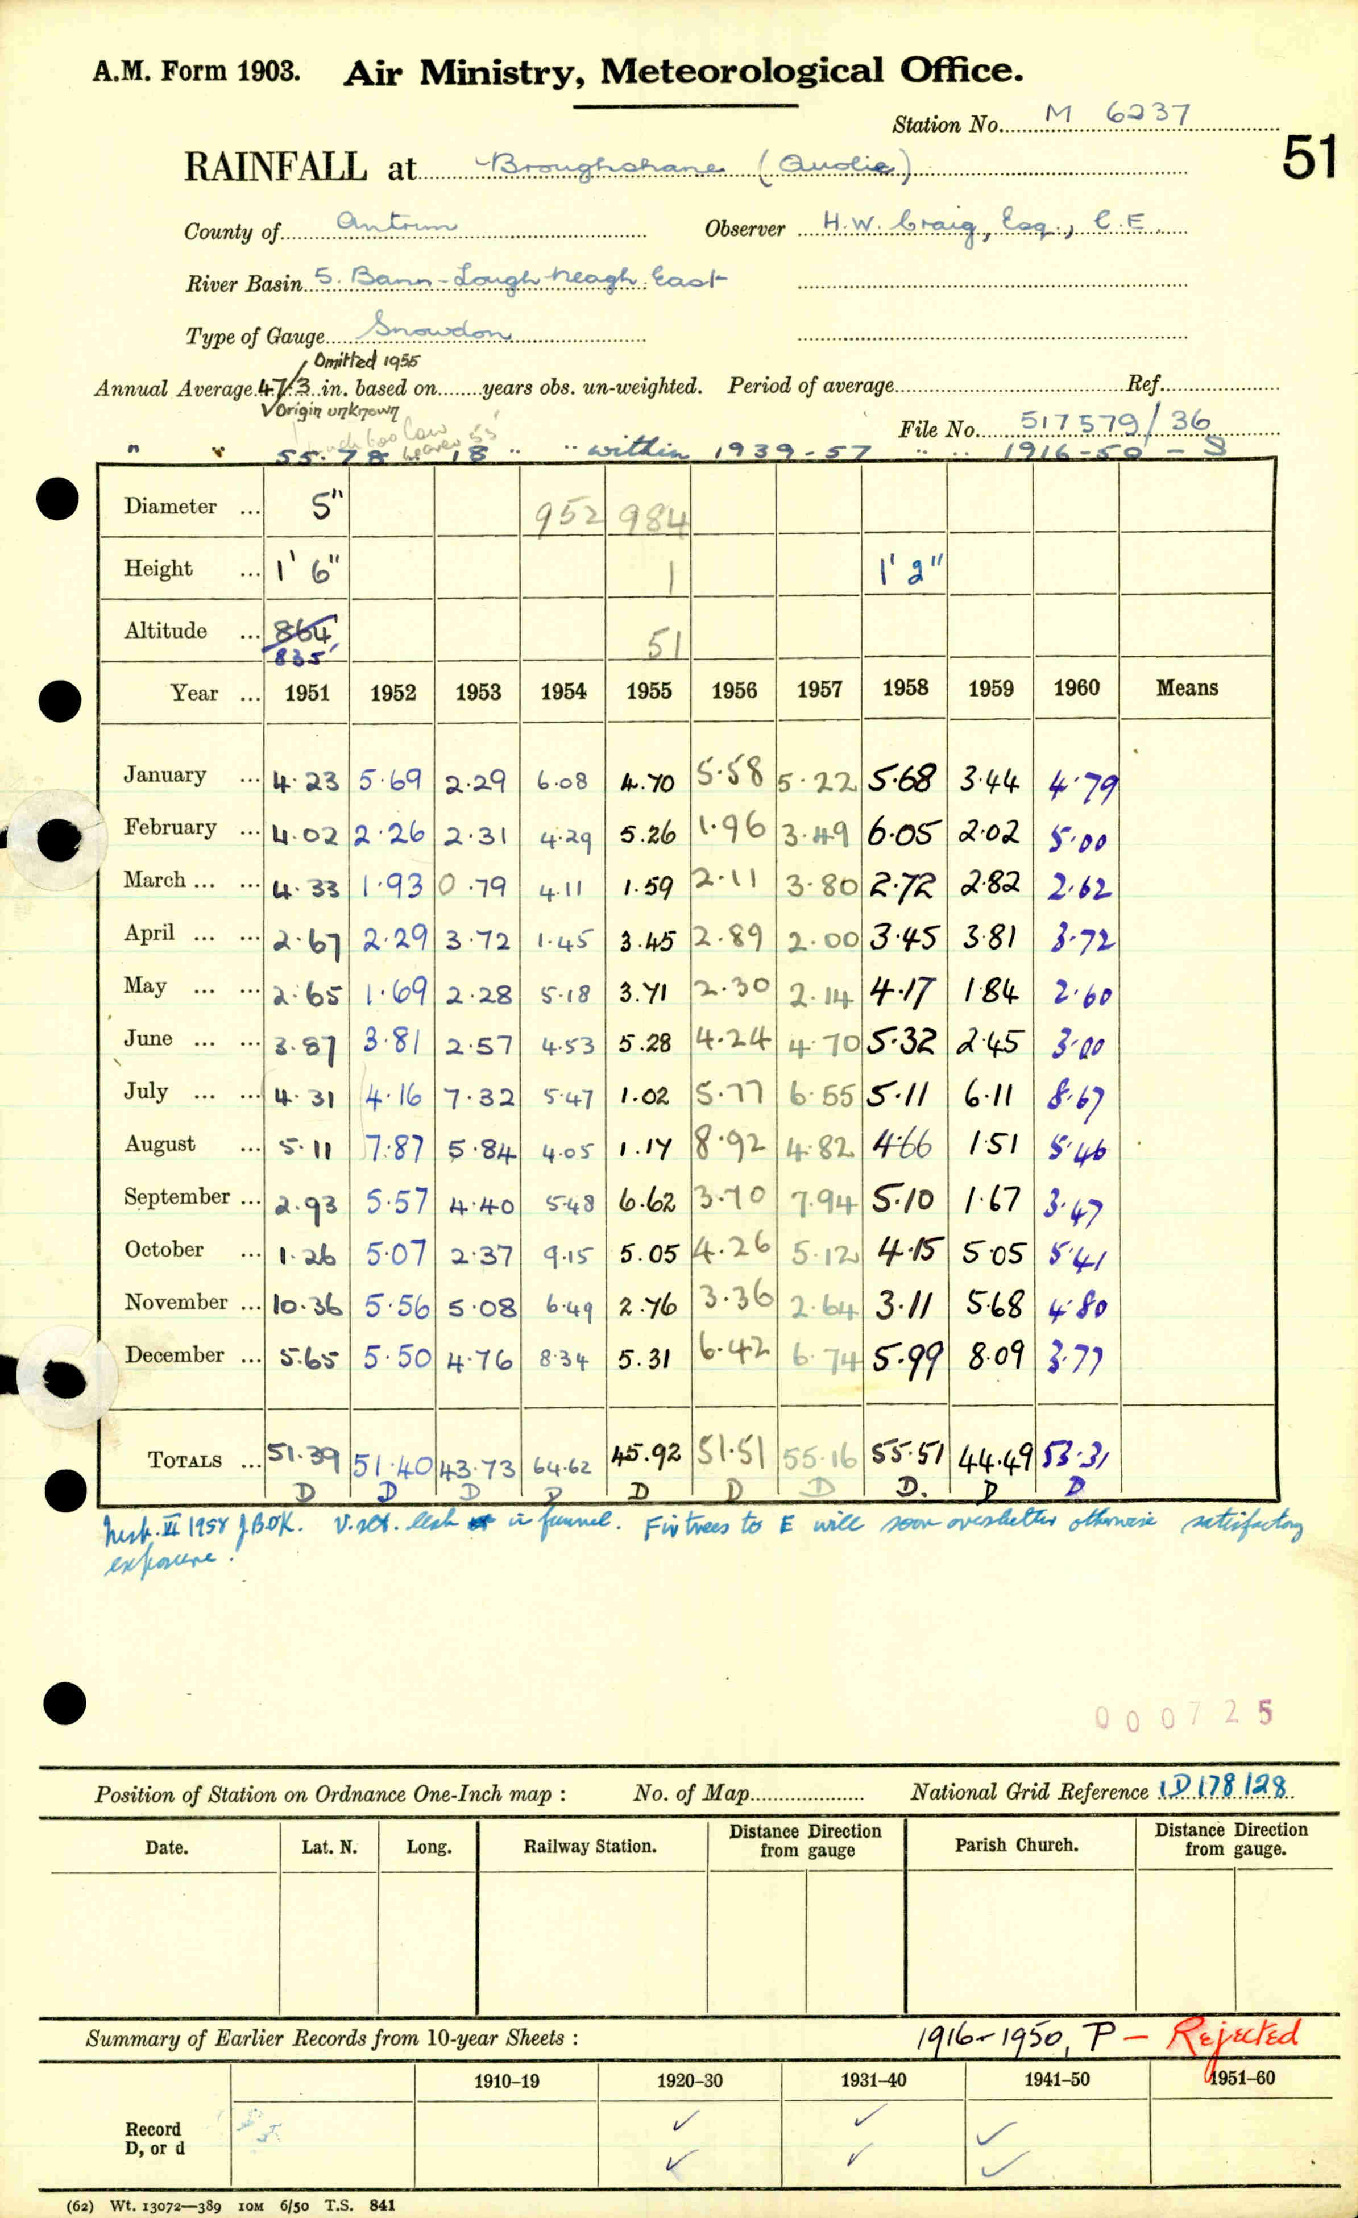 A.M. Form 1903. Air Ministry, Meteorological Office.
Station No. M 6237
51
RAINFALL at Broughshane (Quolie)
County of Antrim Observer H.W. Craig, Esq., C.E.
River Basin 5. Bann-Lough Neagh East
Type of Gauge Snowdon
Omitted 1955
Annual Average 47.3 in. based on years obs. un-weighted. Period of average Ref.
Origin unknown
File No. 517579/36
" " 55.78 18 " " within 1939-57 " " 1916-50 - S
Diameter ... 5" 952 984
Height ... 1' 6" 1 1' 2"
Altitude ... 864'
835' 51
Year ... 1951 1952 1953 1954 1955 1956 1957 1958 1959 1960 Means
January ... 4.23 5.69 2.29 6.08 4.70 5.58 5.22 5.68 3.44 4.79
February ... 4.02 2.26 2.31 4.29 5.26 1.96 3.49 6.05 2.02 5.00
March ... ... 4.33 1.93 0.79 4.11 1.59 2.11 3.80 2.72 2.82 2.62
April ... ... 2.67 2.29 3.72 1.45 3.45 2.89 2.00 3.45 3.81 3.72
May ... ... 2.65 1.69 2.28 5.18 3.71 2.30 2.14 4.17 1.84 2.60
June ... ... 3.87 3.81 2.57 4.53 5.28 4.24 4.70 5.32 2.45 3.00
July ... ... 4.31 4.16 7.32 5.47 1.02 5.77 6.55 5.11 6.11 8.67
August ... 5.11 7.87 5.84 4.05 1.17 8.92 4.82 4.66 1.51 5.46
September ... 2.93 5.57 4.40 5.48 6.62 3.70 7.94 5.10 1.67 3.47
October ... 1.26 5.07 2.37 9.15 5.05 4.26 5.12 4.15 5.05 5.41
November ... 10.36 5.56 5.08 6.49 2.76 3.36 2.64 3.11 5.68 4.80
December ... 5.65 5.50 4.76 8.34 5.31 6.42 6.74 5.99 8.09 3.77
TOTALS ... 51.39 51.40 43.73 64.62 45.92 51.51 55.16 55.51 44.49 53.31
D D D D D D D D. D D
VI 1958 J.BOK. leak in funnel. Fir trees to E will soon overshelter otherwise satisfactory
exposure.
000725
Position of Station on Ordnance One-Inch map : No. of Map National Grid Reference ID 178 128
Date. Lat. N. Long. Railway Station. Distance Direction from gauge Parish Church. Distance Direction from gauge.
Summary of Earlier Records from 10-year Sheets : 1916-1950, P - Rejected
1910–19 1920–30 1931–40 1941–50 1951–60
Record ✓ ✓ ✓
D, or d ✓ ✓ ✓
(62) Wt. 13072—389 10M 6/50 T.S. 841